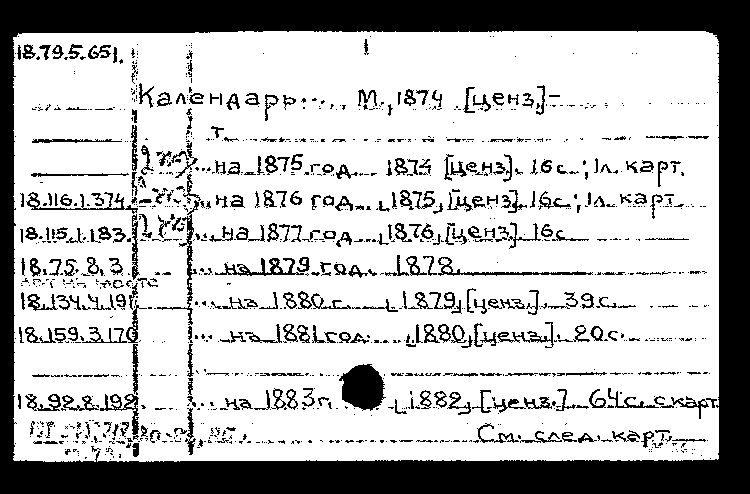 18.79.5.651.
Календарь..., М., 1874 [ценз.]-
т.
...на 1875 год 1874 [ценз]. 16с.; 1л. карт.
18.116.1.374. ...на 1876 год 1875, [ценз]. 16с.; 1л. карт.
18.115.1.183. ...на 1877 год 1876, [ценз]. 16с
18.75.8.3 ...на 1879 год. 1878.
нет на месте
18.134.4.191 ...на 1880 г. 1879, [ценз.]. 39с.
18.159.3.170 ...на 1881 год 1880, [ценз.]. 20с.
18.92.8.192. ...на 1883г. 1882, [ценз.]. 64с. с карт
См. след. карт.